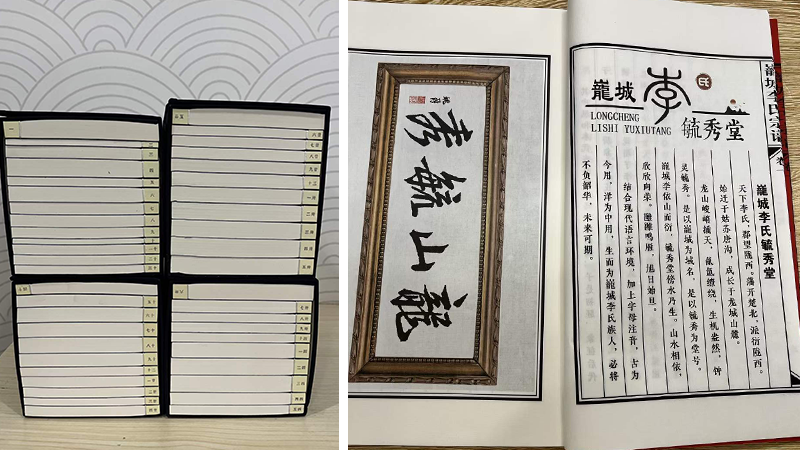 龍山毓秀
巃城李氏
LONGCHENG
LISHI YUXIUTANG
毓秀堂
巃城李氏宗谱 卷一
巃城李氏毓秀堂
天下李氏，郡望陇西。藩开楚北，派衍陇西。
始迁于姑苏唐沟，成长于龙城山麓。
龙山峻嵴插天，氤氲缭绕，生机盎然，钟
灵毓秀。是以巃城为城名，是以毓秀为堂号。
巃城李依山而衍，毓秀堂傍水乃生。山水相依，
欣欣向荣。雝雝鸣雁，旭日始旦。
结合现代语言环境，加上字母注音，古为
今用，洋为中用，生而为巃城李氏族人，必将
不负韶华，未来可期。